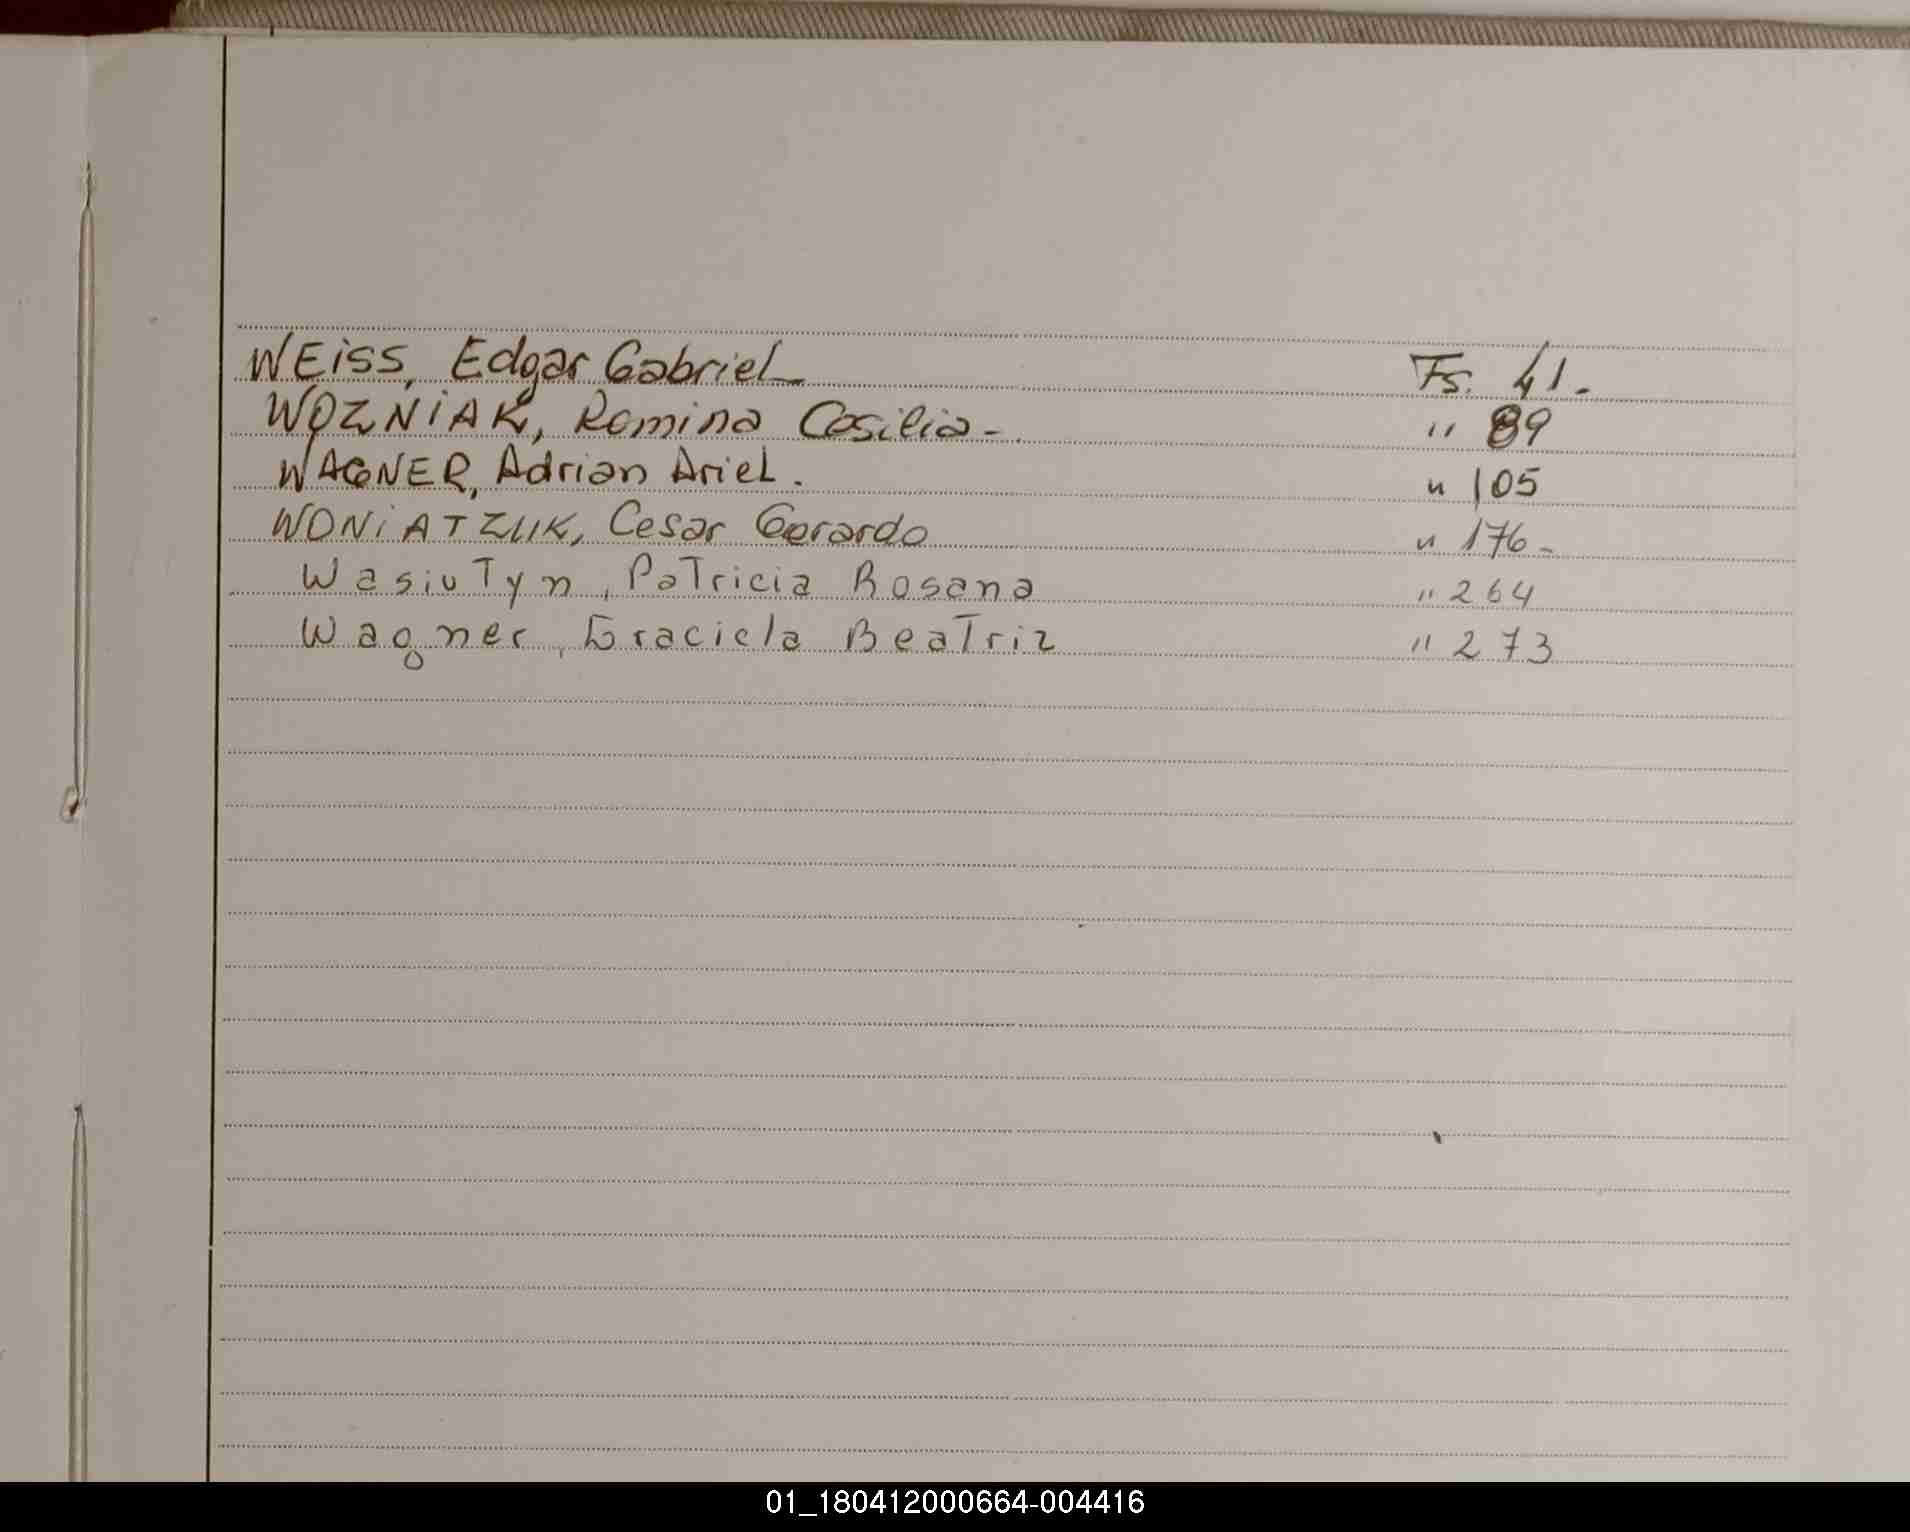 WEISS, Edgar Gabriel Fs. 41.
WOZNIAK, Romina Cesilia - " 89
WAGNER, Adrian Ariel. " 105
WONIATZUK, Cesar Gerardo " 176 -
Wasiutyn, Patricia Rosana " 264
Wagner, Graciela Beatriz " 273
01_180412000664-004416